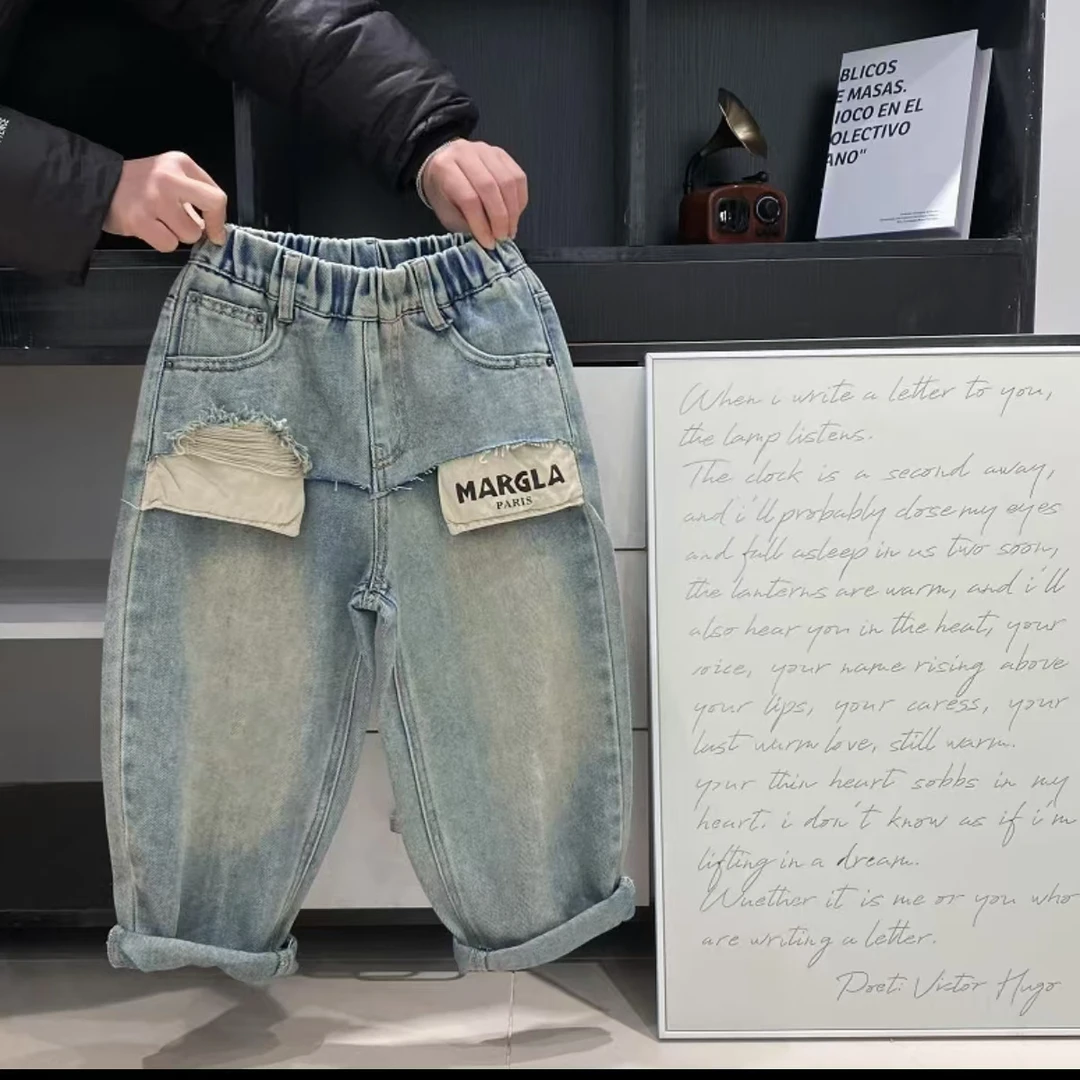 BLICOS
E MASAS.
IOCO EN EL
OLECTIVO
ANO"
MARGLA
PARIS
When i write a letter to you,
the lamp listens.
The clock is a second away,
and i'll probably close my eyes
and fall asleep in us two soon,
the lanterns are warm, and i'll
also hear you in the heat, your
voice, your name rising above
your lips, your caress, your
last warm love, still warm.
your thin heart sobbs in my
heart. i don't know as if i'm
lifting in a dream.
Whether it is me or you who
are writing a letter.
Poet: Victor Hugo